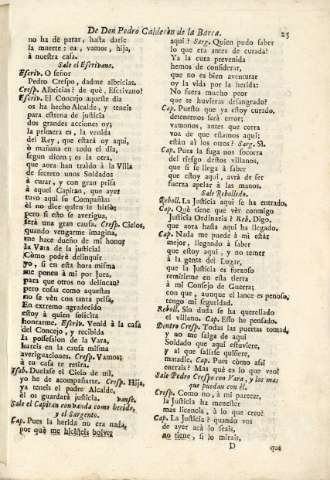 De Don Pedro Calderon de la Barca.
25
no ha de parar, hasta darle
la muerte: ea, vamos, hija,
à nuestra casa.
Sale el Escrivano.
Escriv. O señor
Pedro Crespo, dadme albricias.
Cresp. Albricias? de què, Escrivano?
Escriv. El Concejo aqueste dia
os ha hecho Alcalde, y teneis
para estrena de justicia
dos grandes acciones oy;
la primera es, la venida
del Rey, que estarà oy aqui,
ò mañana en todo el dia,
segun dicen; es la otra,
que aora han traido à la Villa
de secreto unos Soldados
à curar, y con gran prisa
à aquel Capitan, que ayer
tuvo aqui su Compañia:
èl no dice quien le hiriò;
pero si esto se averigua,
serà una gran causa. Cresp. Cielos,
quando vengarme imagina,
me hace dueño de mi honor
la Vara de la justicia!
Còmo podrè delinquir
yo, si en esta hora misma
me ponen à mi por Juez,
para que otros no delincan?
pero cosas como aquestas
no se vèn con tanta prisa.
En extremo agradecido
estoy à quien solicita
honrarme. Escriv. Venid à la casa
del Concejo, y recibida
la possession de la Vara,
hareis en la causa misma
averiguaciones. Cresp. Vamos:
à tu casa te retira.
Isab. Duelase el Cielo de mì,
yo he de acompañarte. Cresp. Hija,
ya teneis el padre Alcalde,
èl os guardarà justicia. vanse.
Sale el Capitan con vanda como herido,
y el Sargento.
Cap. Pues la herida no era nada,
por què me hicisteis bolver
aqui? Sarg. Quien pudo saber
lo que era antes de curada?
Ya la cura prevenida
hemos de considerar,
que no es bien aventurar
oy la vida por la herida:
No fuera mucho peor
que te huvieras desangrado?
Cap. Puesto que ya estoy curado,
detenernos serà error:
vamonos, antes que corra
voz de que estamos aqui;
estàn aì los otros? Sarg. Sì.
Cap. Pues la fuga nos socorra
del riesgo destos villanos,
que si se llega à saber
que estoy aqui, avrà de ser
fuerza apelar à las manos.
Sale Rebolledo.
Reboll. La Justicia aqui se ha entrado.
Cap. Què tiene que vèr conmigo
Justicia Ordinaria? Reb. Digo,
que aora hasta aqui ha llegado.
Cap. Nada me puede à mi estàr
mejor, llegando à saber
que estoy aqui, y no temer
à la gente del Lugar,
que la Justicia es forzoso
remitirme en esta tierra
à mi Consejo de Guerra;
con que, aunque el lance es penoso,
tengo mi seguridad.
Reboll. Sin duda se ha querellado
el villano. Cap. Esso he pensado.
Dentro Cresp. Todas las puertas tomad,
y no me salga de aqui
Soldado que aqui estuviere,
y al que salirse quisiere,
matadle. Cap. Pues còmo assi
entrais? Mas què es lo que veo!
Sale Pedro Crespo con Vara, y los mas
que puedan con èl.
Cresp. Como no, à mi parecer,
la Justicia ha menester
mas licencia, à lo que creo?
Cap. La Justicia? quando vos
de ayer acà lo seais,
no tiene, si lo mirais,
D
que